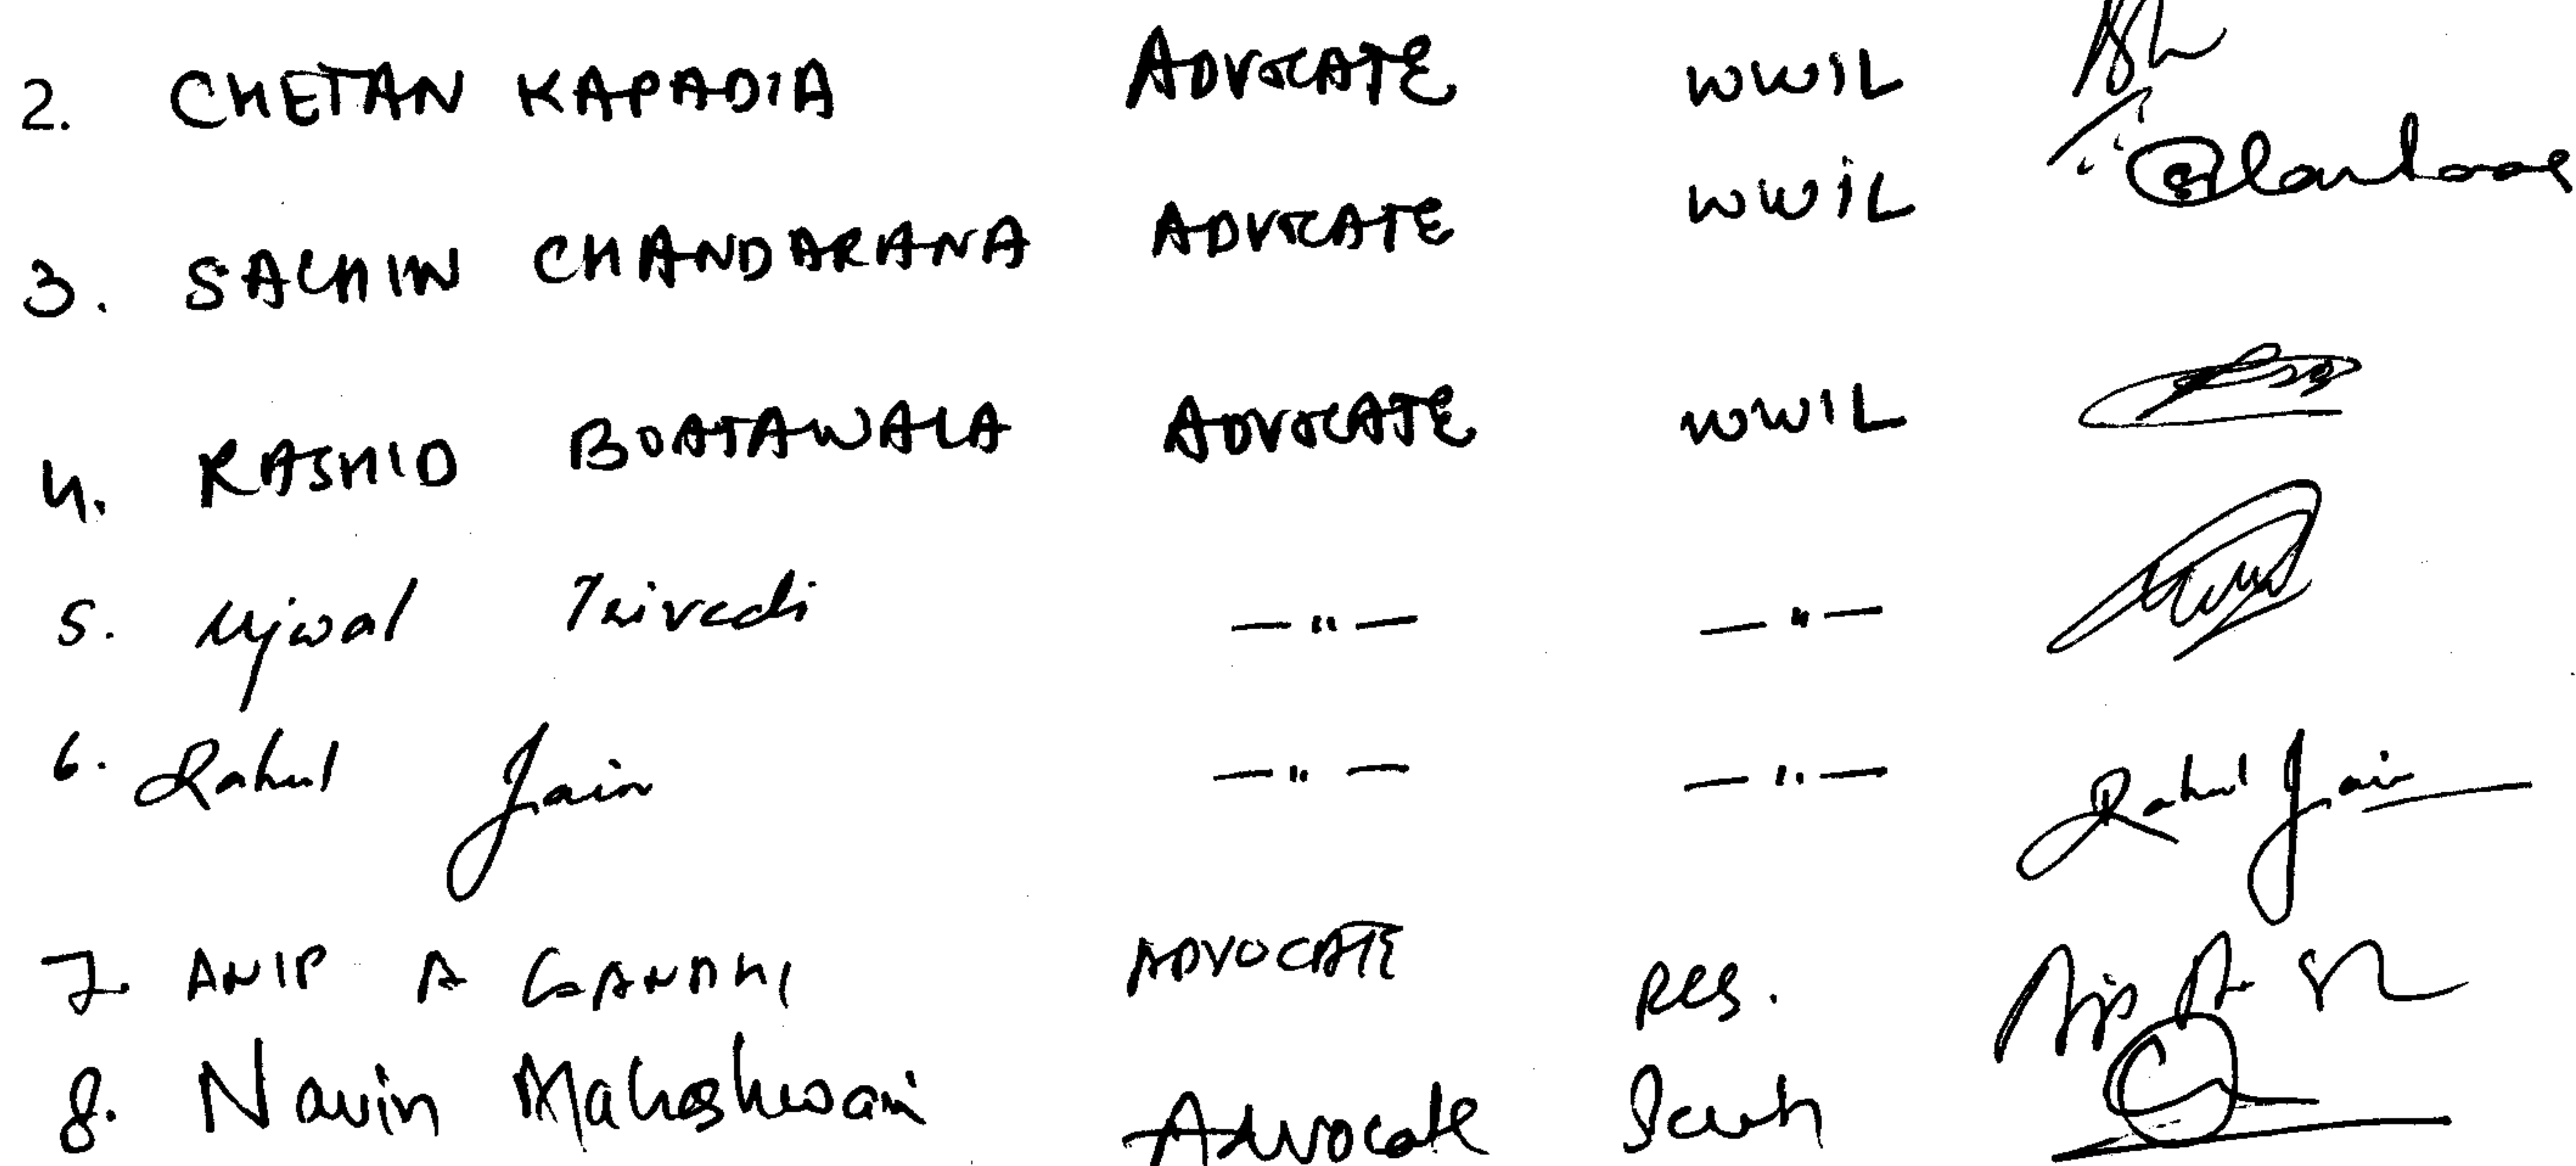 2. CHETAN KAPADIA ADVOCATE WWIL
3. SACHIN CHANDARANA ADVOCATE WWIL
4. RASHID BOATAWALA ADVOCATE WWIL
5. Ujwal Trivedi —"— —"—
6. Rahul Jain —"— —"— Rahul Jain
7. ANIP A GANDHI ADVOCATE RES.
8. Navin Maheshwari Advocate